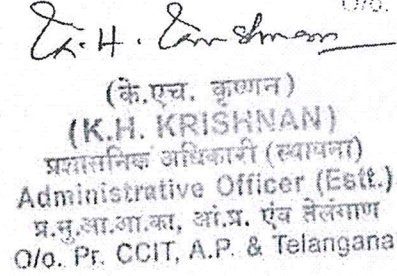 O/o.
K.H. Krishnan
(के.एच. कृष्णन)
(K.H. KRISHNAN)
प्रशासनिक अधिकारी (स्थापना)
Administrative Officer (Estt.)
प्र.मु.आ.आ.का, आं.प्र. एंव तेलंगाण
O/o. Pr. CCIT, A.P. & Telangana